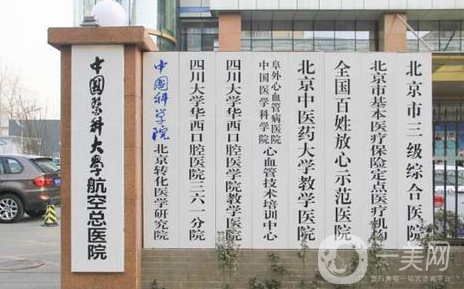 中国医科大学航空总医院
中国科学院
北京转化医学研究院
四川大学华西口腔医院三六一分院
四川大学华西口腔医学院教学医院
中国医学科学院
阜外心血管病医院
心血管技术培训中心
北京中医药大学教学医院
全国百姓放心示范医院
北京市基本医疗保险定点医疗机构
北京市三级综合医院
一美网